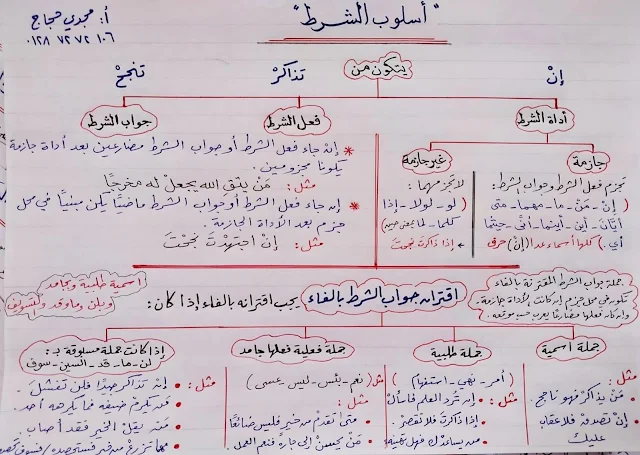 "أسلوب الشرط"
أ: مجدي حجاج
٠١٢٨ ٧٢ ٧٢ ١٠٦
يتكون من
إنْ تذاكرْ تنجحْ
أداة الشرط
فعل الشرط
جواب الشرط
جازمة
غير جازمة
تجزم فعل الشرط وجواب الشرط:
( إنْ - مَنْ - ما - مهما - متى
أيّان - أين - أينما - أنّى - حيثما
أي .) كلها أسماء عدا (إنْ) حرف
لا تجزمهما:
( لو - لولا - إذا
كلما - لما بمعنى حين)
إذا ذاكرتَ نجحتَ
* إن جاء فعل الشرط أو جواب الشرط مضارعين بعد أداة جازمة
يكونا مجزومين.
مثل: مَنْ يتقِ الله يجعلْ له مخرجًا
* إن جاء فعل الشرط أو جواب الشرط ماضيًا يكن مبنيًا في محل
جزم بعد الأداة الجازمة.
مثل: إنْ اجتهدْتَ نجحْتَ
جملة جواب الشرط المقترنة بالفاء
تكون في محل جزم إن كانت الأداة جازمة.
وإن كان فعلها مضارعًا يعرب حسب موقعه.
اقتران جواب الشرط بالفاء
يجب اقترانه بالفاء إذا كان:
اسمية طلبية وبجامد
وبلن وما وقد وبالتسويف
جملة اسمية
مثل:
مَنْ يذاكرْ فهو ناجح.
إنْ تصدقْ فلا عقاب
عليك
جملة طلبية
( أمر - نهي - استفهام )
مثل: إنْ تُرد العلم فاسألْ
إذا ذاكرتَ فلا تقصرْ.
من يساندك فهل
جملة فعلية فعلها جامد
( نعم - بئس - ليس - عسى )
مثل:
متى تقدم من خير فليس ضائعًا
مَنْ يحسنْ إلى جاره فنعم العمل
إذا كانت جملة مسبوقة بـ:
لن - ما - قد - السين - سوف
مثل: إنْ تذاكر جيدًا فلن تفشلَ.
مَنْ يكرمْ ضيفه فما يكرهه أحد.
مَنْ يقل الخير فقد أصاب.
مهما تزرعْ من خير فستحصده/فسوف